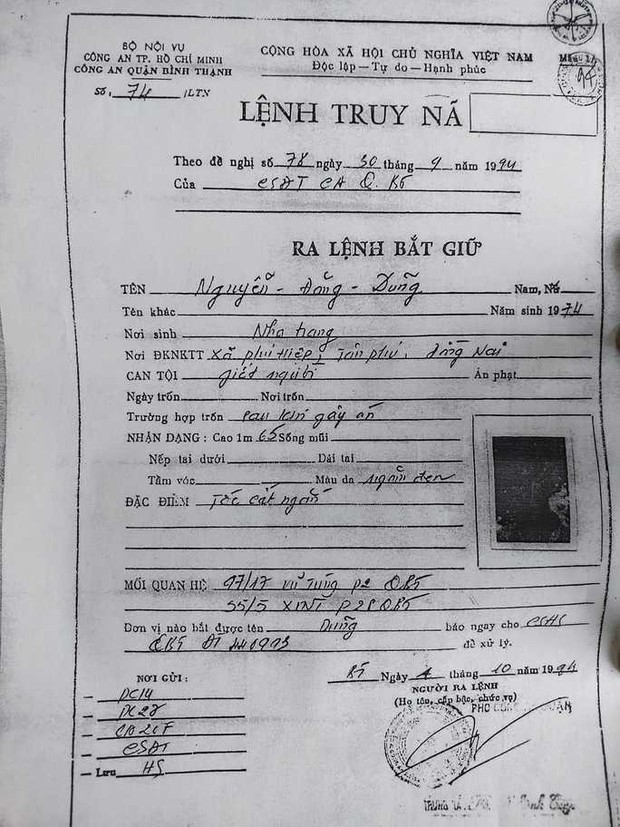 BỘ NỘI VỤ
CÔNG AN TP. HỒ CHÍ MINH
CÔNG AN QUẬN BÌNH THẠNH
Số: 74 /LTN
CỘNG HÒA XÃ HỘI CHỦ NGHĨA VIỆT NAM
Độc lập — Tự do — Hạnh phúc
LỆNH TRUY NÃ
Theo đề nghị số 78 ngày 30 tháng 9 năm 1994
Của CSĐT CA Q. BT
RA LỆNH BẮT GIỮ
TÊN Nguyễn - Đăng - Dũng Nam, Nữ
Tên khác Năm sinh 1974
Nơi sinh Nha trang
Nơi ĐKNKTT Xã phú Hiệp, Tân phú, Đồng Nai
CAN TỘI giết người Án phạt
Ngày trốn Nơi trốn
Trường hợp trốn sau khi gây án
NHẬN DẠNG : Cao 1m 65 Sống mũi
Nếp tai dưới Dái tai
Tầm vóc Màu da ngăm đen
ĐẶC ĐIỂM Tóc cắt ngắn
MỐI QUAN HỆ 97/17 P2 QBT
55/5 XVNT P28 QBT
Đơn vị nào bắt được tên Dũng báo ngay cho CSHS
QBT ĐT 441973 để xử lý.
BT Ngày 4 tháng 10 năm 1994
NƠI GỬI :
NGƯỜI RA LỆNH
(Họ tên, cấp bậc, chức vụ)
— PC14
— PC27
— CSĐT
— Lưu HS